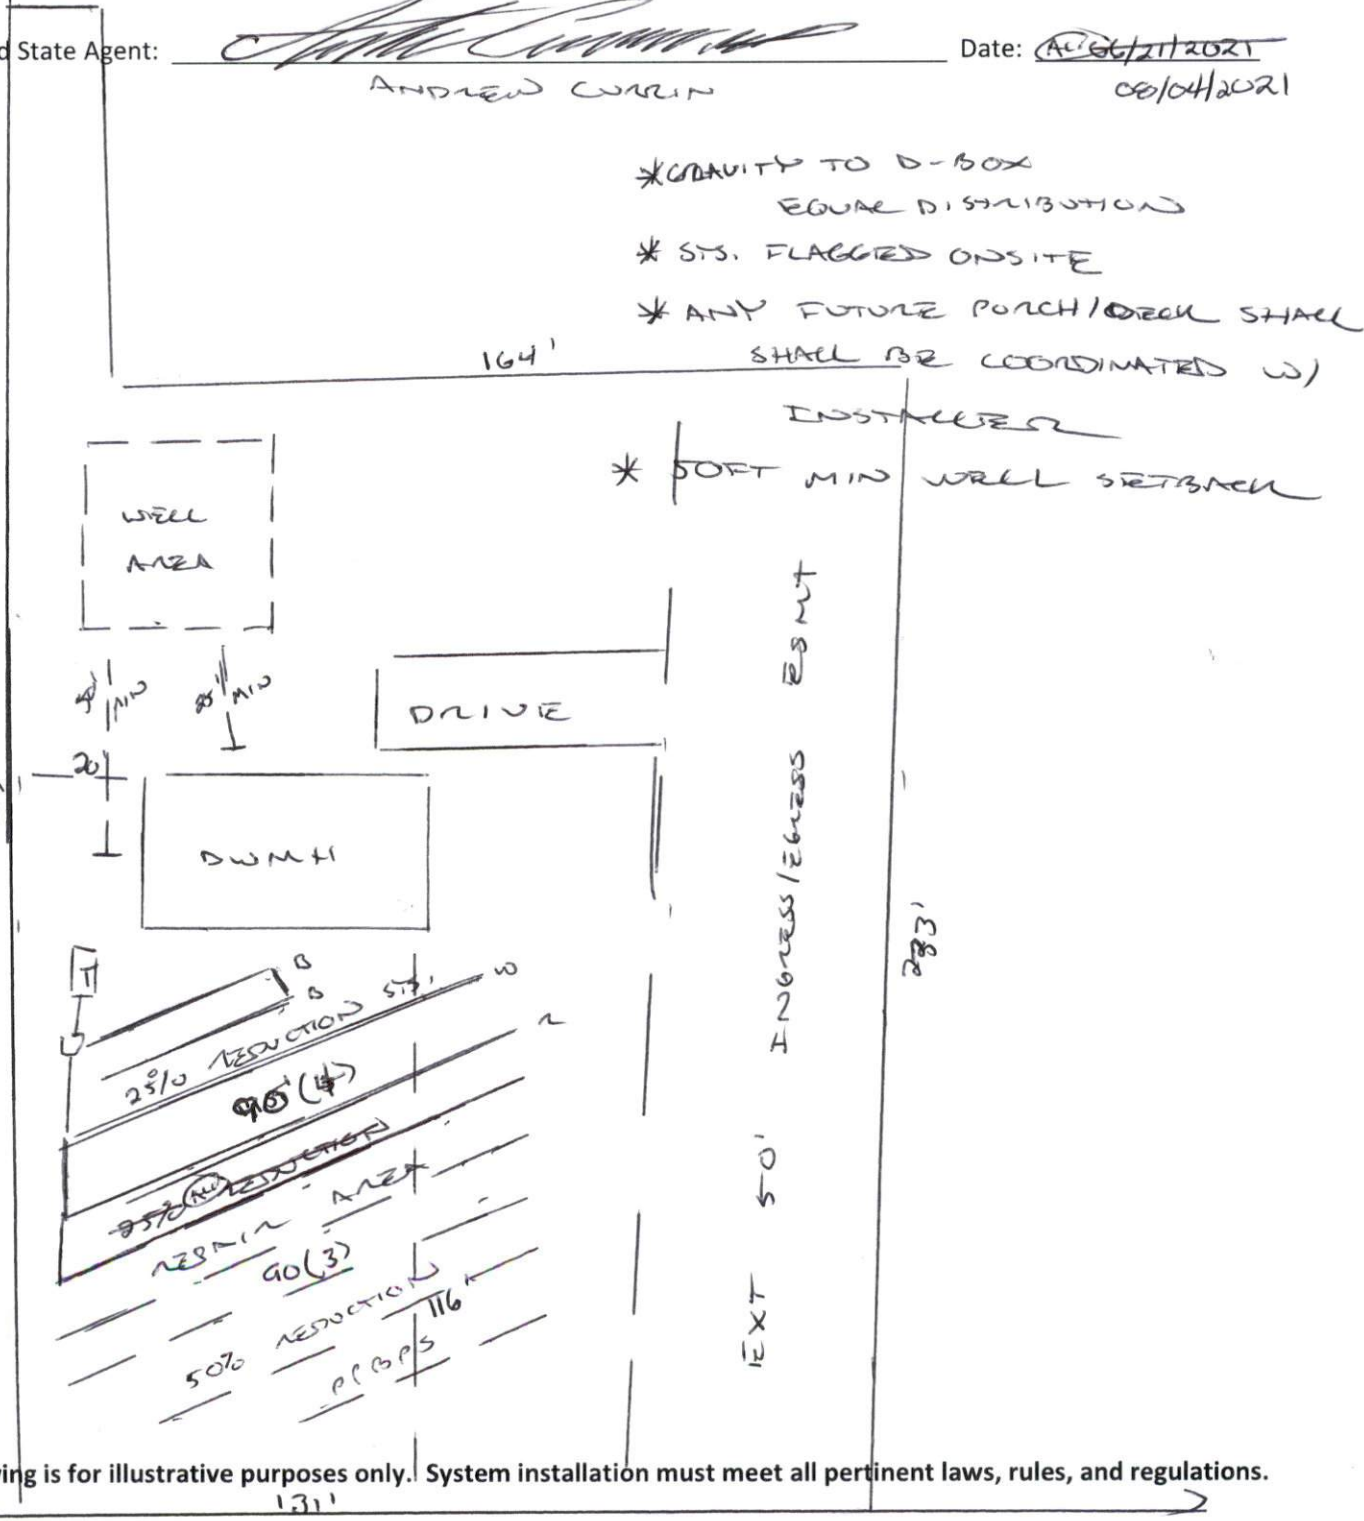 d State Agent:
Date: 06/21/2021
ANDREW CURRIN
08/04/2021
*GRAVITY TO D-BOX
EQUAL DISTRIBUTION
* SYS. FLAGGED ONSITE
* ANY FUTURE PORCH/DECK SHALL
SHALL BE COORDINATED W/
INSTALLER
* 50FT MIN WELL SETBACK
164'
WELL
AREA
50' MIN
25' MIN
DRIVE
20'
DWMH
INGRESS/EGRESS ESMT
EXT 50'
283'
T
B
B
W
R
25% REDUCTION SYS.
90'(4)
25% REDUCTION
REPAIR AREA
90(3)
50% REDUCTION
116'
PPBPS
wing is for illustrative purposes only. System installation must meet all pertinent laws, rules, and regulations.
131'